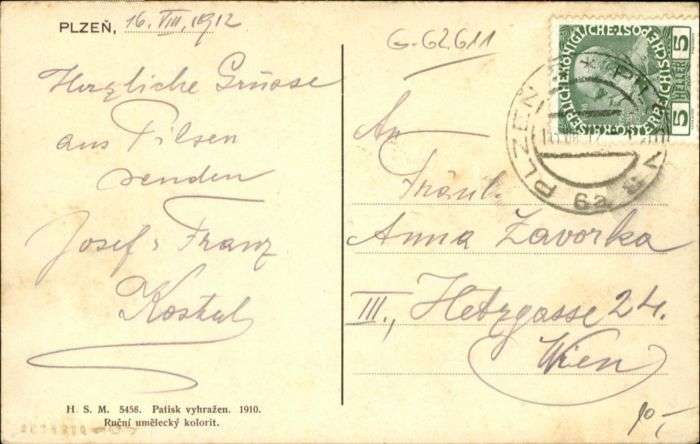 PLZEŇ, 16. VIII. 1912
Herzliche Grüsse
aus Pilsen
senden
Josef & Franz
H. S. M. 5456. Patisk vyhražen. 1910.
Ruční umělecký kolorit.
G-62611
An
Fräul.
Anna Zavorka
III., Hetzgasse 24.
Wien
10,-
5 HELLER 5
KAISERLICHE-KÖNIGLICHE-ÖSTERREICHISCHE POST
PLZEŇ
6a